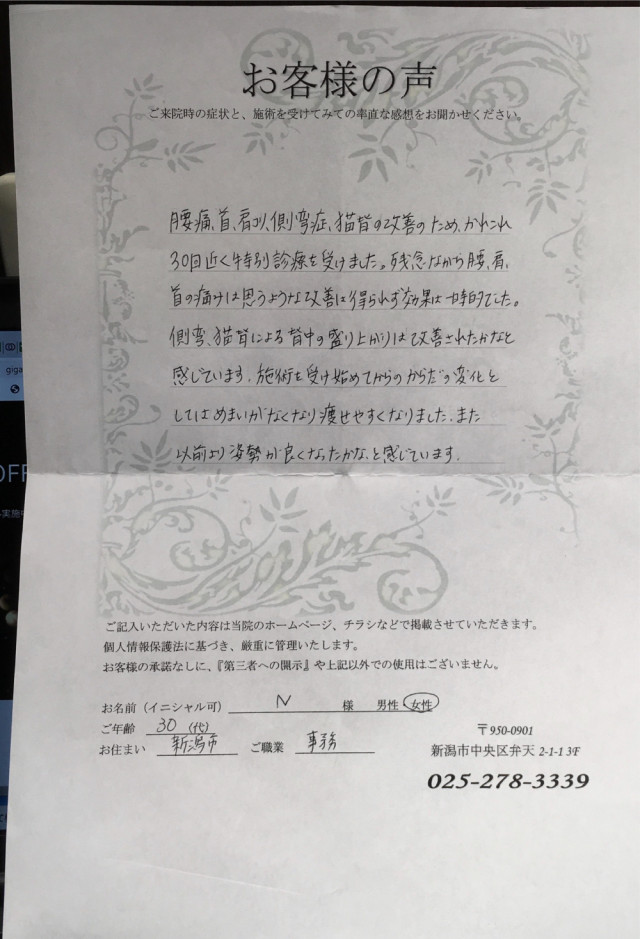 お客様の声
ご来院時の症状と、施術を受けてみての率直な感想をお聞かせください。
腰痛、首、肩コリ、側弯症、猫背の改善のため、かれこれ
30回近く特別診療を受けました。残念ながら腰、肩、
首の痛みは思うような改善は得られず効果は一時的でした。
側弯、猫背による背中の盛り上がりは改善されたかなと
感じています。施術を受け始めてからのからだの変化と
してはめまいがなくなり痩せやすくなりました。また
以前より姿勢が良くなったかな、と感じています。
ご記入いただいた内容は当院のホームページ、チラシなどで掲載させていただきます。
個人情報保護法に基づき、厳重に管理いたします。
お客様の承諾なしに、『第三者への開示』や上記以外での使用はございません。
お名前（イニシャル可） N 様 男性 女性
ご年齢 30（代）
お住まい 新潟市 ご職業 事務
〒950-0901
新潟市中央区弁天 2-1-1 3F
025-278-3339
giga
OFF
実施中